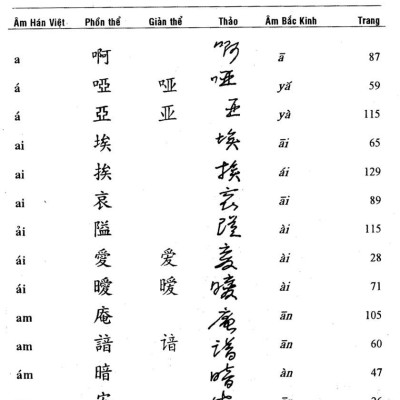 Âm Hán Việt Phồn thể Giản thể Thảo Âm Bắc Kinh Trang
a 啊 啊 ā 87
á 啞 哑 哑 yǎ 59
á 亞 亚 亚 yà 115
ai 埃 埃 āi 65
ai 挨 挨 ái 129
ai 哀 哀 āi 89
ải 隘 隘 ài 115
ái 愛 爱 爱 ài 28
ái 曖 暧 暧 ài 71
am 庵 庵 ān 105
am 諳 谙 谙 ān 60
ám 暗 暗 àn 47